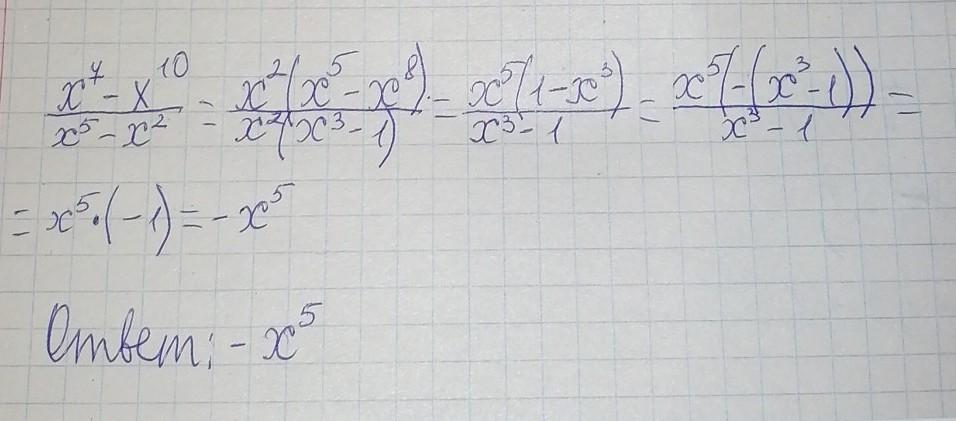 \frac{x^7 - x^{10}}{x^5 - x^2} = \frac{x^2(x^5 - x^8)}{x^2(x^3 - 1)} = \frac{x^5(1 - x^3)}{x^3 - 1} = \frac{x^5(-(x^3 - 1))}{x^3 - 1} =
= x^5 \cdot (-1) = -x^5
Ответ: -x^5